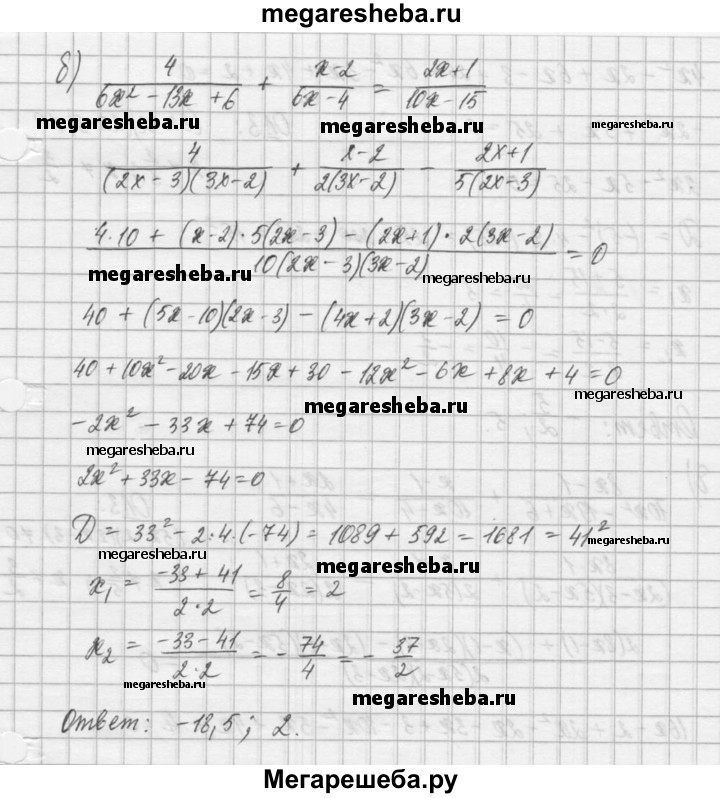 megaresheba.ru
б) 4/(6x² − 13x + 6) + (x−2)/(6x−4) = (2x+1)/(10x−15)
megaresheba.ru megaresheba.ru megaresheba.ru
4/((2x−3)(3x−2)) + (x−2)/(2(3x−2)) − (2x+1)/(5(2x−3))
(4·10 + (x−2)·5(2x−3) − (2x+1)·2(3x−2))/(10(2x−3)(3x−2)) = 0
megaresheba.ru megaresheba.ru
40 + (5x−10)(2x−3) − (4x+2)(3x−2) = 0
40 + 10x² − 20x − 15x + 30 − 12x² − 6x + 8x + 4 = 0
megaresheba.ru
−2x² − 33x + 74 = 0
megaresheba.ru megaresheba.ru
2x² + 33x − 74 = 0
D = 33² − 2·4·(−74) = 1089 + 592 = 1681 = 41²
megaresheba.ru megaresheba.ru
megaresheba.ru
x₁ = (−33+41)/(2·2) = 8/4 = 2
x₂ = (−33−41)/(2·2) = −74/4 = −37/2
megaresheba.ru megaresheba.ru
Ответ: −18,5; 2.
Мегарешеба.ру